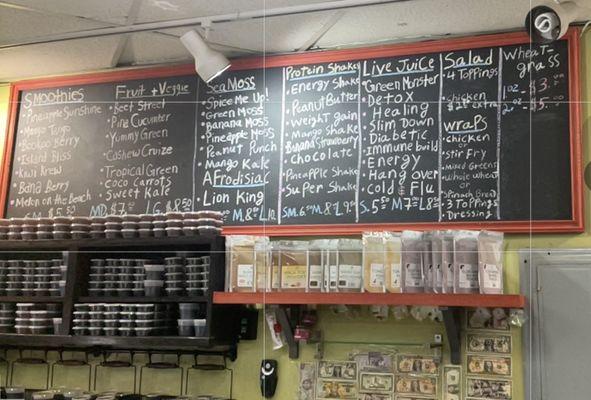 Smoothies
Pineapple Sunshine
Mango Tango
Bookoo Berry
Island Bliss
Kiwi Krew
Bana Berry
Melon on the Beach
Fruit + Veggie
Beet Street
Pine Cucumber
Yummy Green
Cashew Cruize
Tropical Green
Coco Carrots
Sweet Kale
MD. $7 L. $8.50
Sea Moss
Spice Me Up!
Green Moss
Banana Moss
Pineapple Moss
Peanut Punch
Mango Kale
Afrodisiac
Lion King
M8 L10
Protein Shake
Energy Shake
Peanut Butter
Weight gain
Mango Shake
Banana Strawberry
Chocolate
Pineapple Shake
Super Shake
SM. 6 M. 8 L
Live Juice
Green Monster
Detox
Healing
Slim Down
Diabetic
Immune build
Energy
Hang over
cold & Flu
S. 5.50 M7 L8
Salad
4 Toppings
chicken
extra
wraps
chicken
Stir Fry
Mixed Greens
Whole wheat
or
Spinach Bread
3 Toppings
Dressing
Wheat-
grass
1oz - $3.00
2oz - $5.00